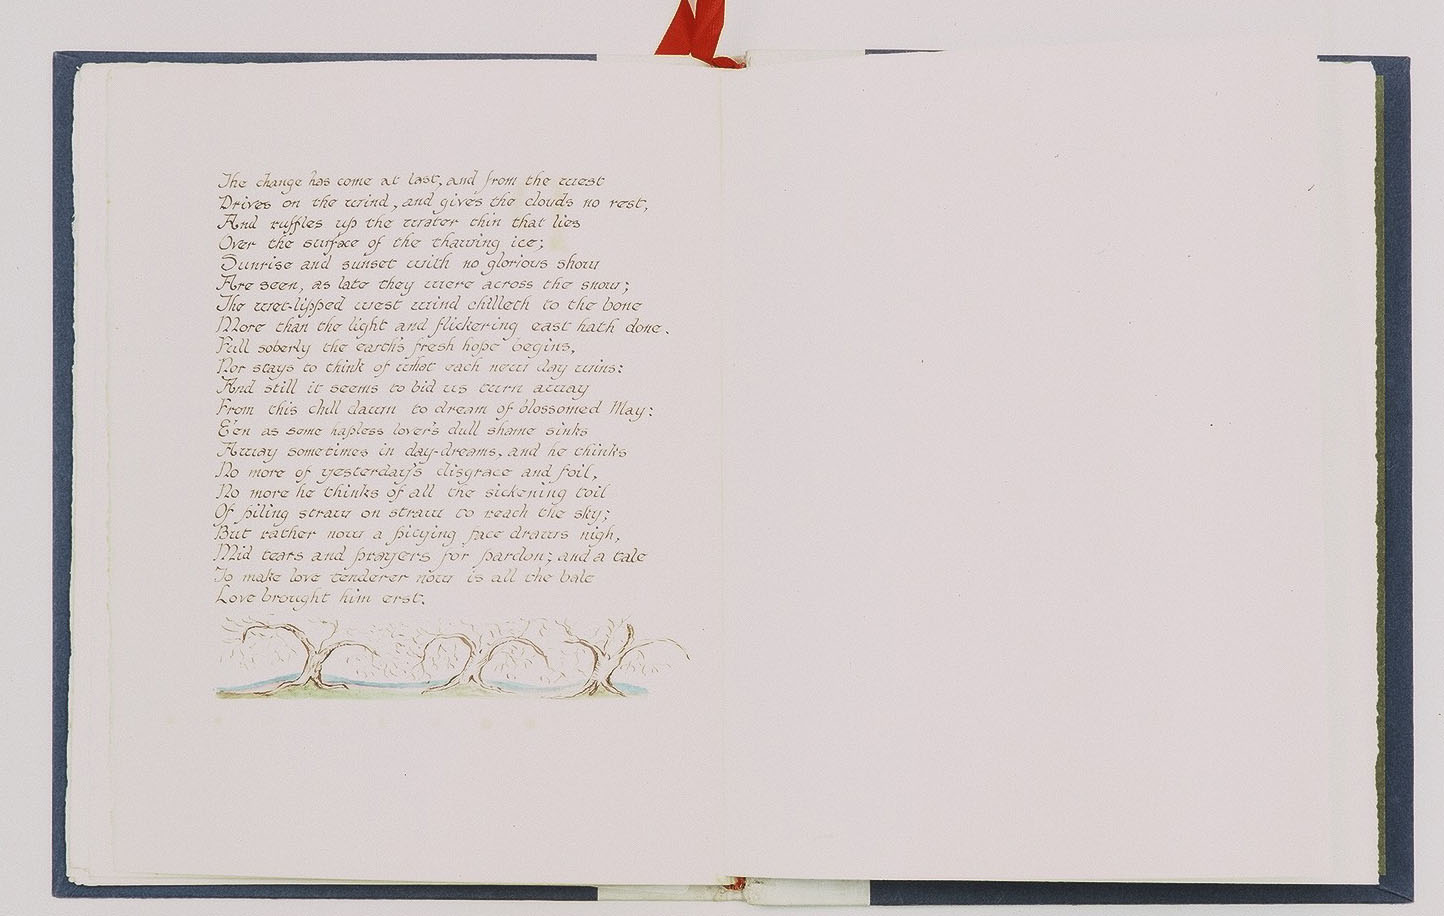 The change has come at last, and from the west
Drives on the wind, and gives the clouds no rest,
And ruffles up the water thin that lies
Over the surface of the thawing ice;
Sunrise and sunset with no glorious show
Are seen, as late they were across the snow;
The wet-lipped west wind chilleth to the bone
More than the light and flickering east hath done.
Full soberly the earth's fresh hope begins,
Nor stays to think of what each new day wins:
And still it seems to bid us turn away
From this chill dawn to dream of blossomed May:
E'en as some hapless lover's dull shame sinks
Away sometimes in day-dreams, and he thinks
No more of yesterday's disgrace and foil,
No more he thinks of all the sickening toil
Of piling straw on straw to reach the sky;
But rather now a pitying face draws nigh,
Mid tears and prayers for pardon; and a tale
To make love tenderer now is all the bale
Love brought him erst.